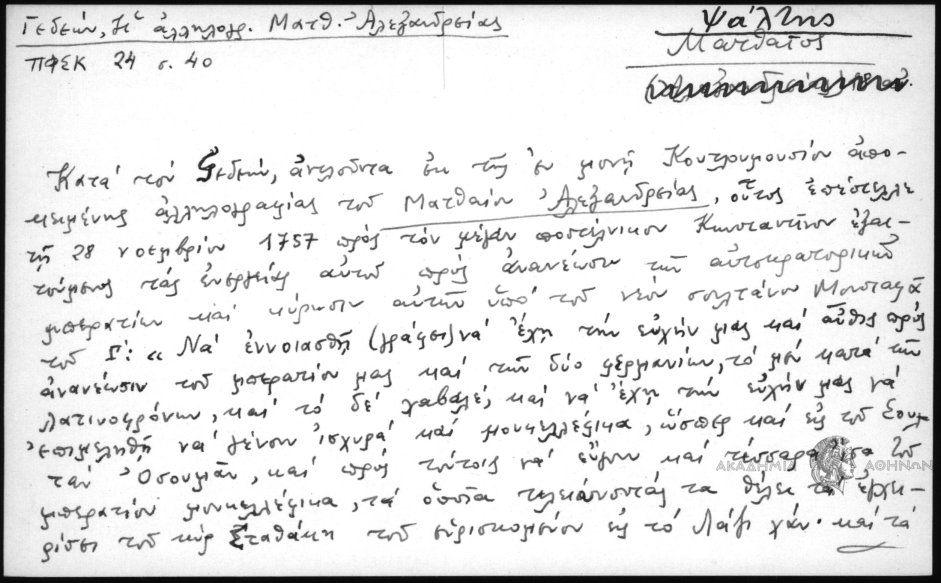 Γεδεών, Ἡ ἀλληλογρ. Ματθ. Ἀλεξανδρείας
ΠΦΣΚ 24 σ. 40
Ψάλτης
Ματθαῖος
Κατά τόν Γεδεών, ἀντλοῦντα ἐκ τῆς ἐν μονῇ Κουτλουμουσίου ἀπο-
κειμένης ἀλληλογραφίας τοῦ Ματθαίου Ἀλεξανδρείας, οὗτος ἐπέστελλε
τῇ 28 νοεμβρίου 1757 πρός τόν μέγαν ποστέλνικον Κωνσταντῖνον ἐξαι-
τούμενος τάς ἐνεργείας αὐτοῦ πρός ἀνανέωσιν τῶν αὐτοκρατορικῶν
μπερατίων καί κύρωσιν αὐτῶν ὑπό τοῦ νέου σουλτάνου Μουσταφᾶ
τοῦ Γ': « Νά ἐννοιασθῇ (γράφει) νά ἔχῃ τήν εὐχήν μας καί αὖθις πρός
ἀνανέωσιν τοῦ μπερατίου μας καί τῶν δύο φερμανίων, τό μέν κατά τῶν
λατινοφρόνων, καί τό δέ χαβαλέ, καί νά ἔχῃ τήν εὐχήν μας νά
ἐπιμεληθῇ νά γένουν ἰσχυρά καί μουκελλέφικα, ὥσπερ καί εἰς τοῦ Σουλ
τάν Ὀσουμάν, καί πρός τούτοις νά εὔγουν καί τέσσαρα ἴσα τοῦ
μπερατίου μουκελλέφικα, τά ὁποῖα τελειώνοντάς τα θέλει τά ἐγχει-
ρίσει τοῦ κύρ Σταθάκη τοῦ εὑρισκομένου εἰς τό Λάζι χάν· καί τά
ΑΚΑΔΗΜΙΑ ΑΘΗΝΩΝ